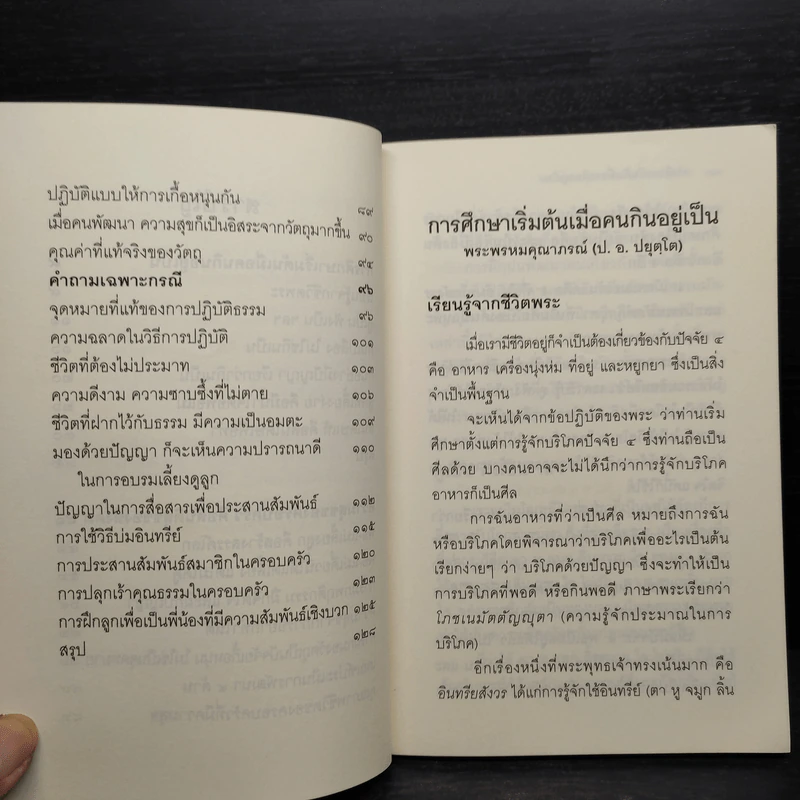 ปฏิบัติแบบให้การเกื้อหนุนกัน ๘๙
เมื่อคนพัฒนา ความสุขก็เป็นอิสระจากวัตถุมากขึ้น ๙๐
คุณค่าที่แท้จริงของวัตถุ ๙๔
คำถามเฉพาะกรณี ๙๖
จุดหมายที่แท้ของการปฏิบัติธรรม ๙๖
ความฉลาดในวิธีการปฏิบัติ ๑๐๑
ชีวิตที่ต้องไม่ประมาท ๑๐๓
ความดีงาม ความซาบซึ้งที่ไม่ตาย ๑๐๖
ชีวิตที่ฝากไว้กับธรรม มีความเป็นอมตะ ๑๐๙
มองด้วยปัญญา ก็จะเห็นความปรารถนาดี ๑๑๐
ในการอบรมเลี้ยงดูลูก
ปัญญาในการสื่อสารเพื่อประสานสัมพันธ์ ๑๑๒
การใช้วิธีบ่มอินทรีย์ ๑๑๕
การประสานสัมพันธ์สมาชิกในครอบครัว ๑๒๐
การปลุกเร้าคุณธรรมในครอบครัว ๑๒๓
การฝึกลูกเพื่อเป็นพี่น้องที่มีความสัมพันธ์เชิงบวก ๑๒๕
สรุป ๑๒๘
การศึกษาเริ่มต้นเมื่อคนกินอยู่เป็น
พระพรหมคุณาภรณ์ (ป. อ. ปยุตฺโต)
เรียนรู้จากชีวิตพระ
เมื่อเรามีชีวิตอยู่ก็จำเป็นต้องเกี่ยวข้องกับปัจจัย ๔
คือ อาหาร เครื่องนุ่งห่ม ที่อยู่ และหยูกยา ซึ่งเป็นสิ่ง
จำเป็นพื้นฐาน
จะเห็นได้จากข้อปฏิบัติของพระ ว่าท่านเริ่ม
ศึกษาตั้งแต่การรู้จักบริโภคปัจจัย ๔ ซึ่งท่านถือเป็น
ศีลด้วย บางคนอาจจะไม่ได้นึกว่าการรู้จักบริโภค
อาหารก็เป็นศีล
การฉันอาหารที่ว่าเป็นศีล หมายถึงการฉัน
หรือบริโภคโดยพิจารณาว่าบริโภคเพื่ออะไรเป็นต้น
เรียกง่ายๆ ว่า บริโภคด้วยปัญญา ซึ่งจะทำให้เป็น
การบริโภคที่พอดี หรือกินพอดี ภาษาพระเรียกว่า
โภชเนมัตตัญญุตา (ความรู้จักประมาณในการ
บริโภค)
อีกเรื่องหนึ่งที่พระพุทธเจ้าทรงเน้นมาก คือ
อินทรียสังวร ได้แก่การรู้จักใช้อินทรีย์ (ตา หู จมูก ลิ้น